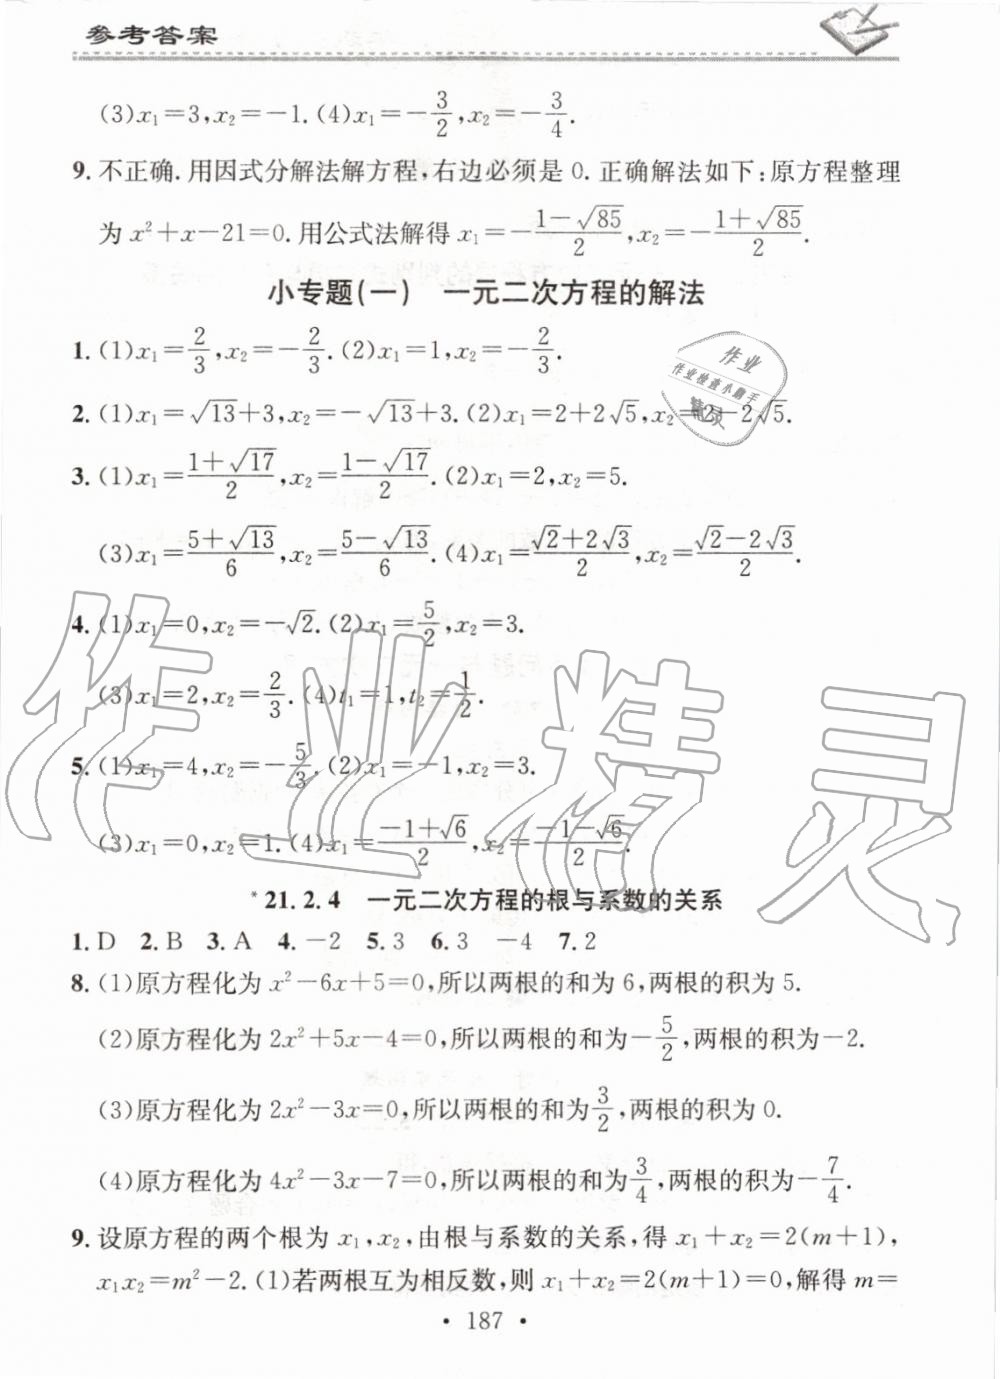 参考答案
(3)x₁=3,x₂=-1.(4)x₁=-3/2,x₂=-3/4.
9. 不正确.用因式分解法解方程,右边必须是0.正确解法如下:原方程整理
为x²+x-21=0.用公式法解得x₁=-(1-√85)/2,x₂=-(1+√85)/2.
小专题(一) 一元二次方程的解法
1. (1)x₁=2/3,x₂=-2/3.(2)x₁=1,x₂=-2/3.
作业
作业检查小助手
精灵
2. (1)x₁=√13+3,x₂=-√13+3.(2)x₁=2+2√5,x₂=2-2√5.
3. (1)x₁=(1+√17)/2,x₂=(1-√17)/2.(2)x₁=2,x₂=5.
(3)x₁=(5+√13)/6,x₂=(5-√13)/6.(4)x₁=(√2+2√3)/2,x₂=(√2-2√3)/2.
4. (1)x₁=0,x₂=-√2.(2)x₁=5/2,x₂=3.
(3)x₁=2,x₂=2/3.(4)t₁=1,t₂=1/2.
5. (1)x₁=4,x₂=-5/3.(2)x₁=-1,x₂=3.
(3)x₁=0,x₂=1.(4)x₁=(-1+√6)/2,x₂=(-1-√6)/2.
作业精灵
*21.2.4 一元二次方程的根与系数的关系
1. D 2. B 3. A 4. -2 5. 3 6. 3 -4 7. 2
8. (1)原方程化为x²-6x+5=0,所以两根的和为6,两根的积为5.
(2)原方程化为2x²+5x-4=0,所以两根的和为-5/2,两根的积为-2.
(3)原方程化为2x²-3x=0,所以两根的和为3/2,两根的积为0.
(4)原方程化为4x²-3x-7=0,所以两根的和为3/4,两根的积为-7/4.
9. 设原方程的两个根为x₁,x₂,由根与系数的关系,得x₁+x₂=2(m+1),
x₁x₂=m²-2.(1)若两根互为相反数,则x₁+x₂=2(m+1)=0,解得m=
• 187 •